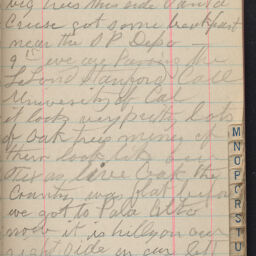 big trees this side Santa
Cruse got some breakfast
near the S P Depo —
9 15 we are Passing the
Leland Stanford Call
University of Cal
it looks very pretty lots
of oak trees mines of
them look like our
Texas live oak the
Country was flat before
we got to Pala Alto
now it is hilly on our
right side on our left
M
N
O
P
Q
R
S
T
U